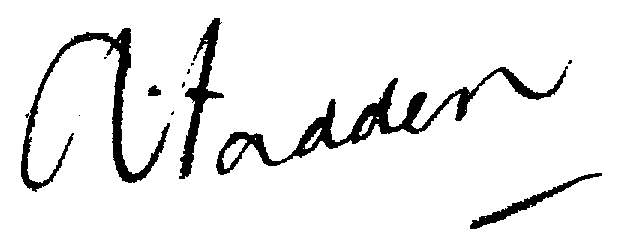 A. Fadden